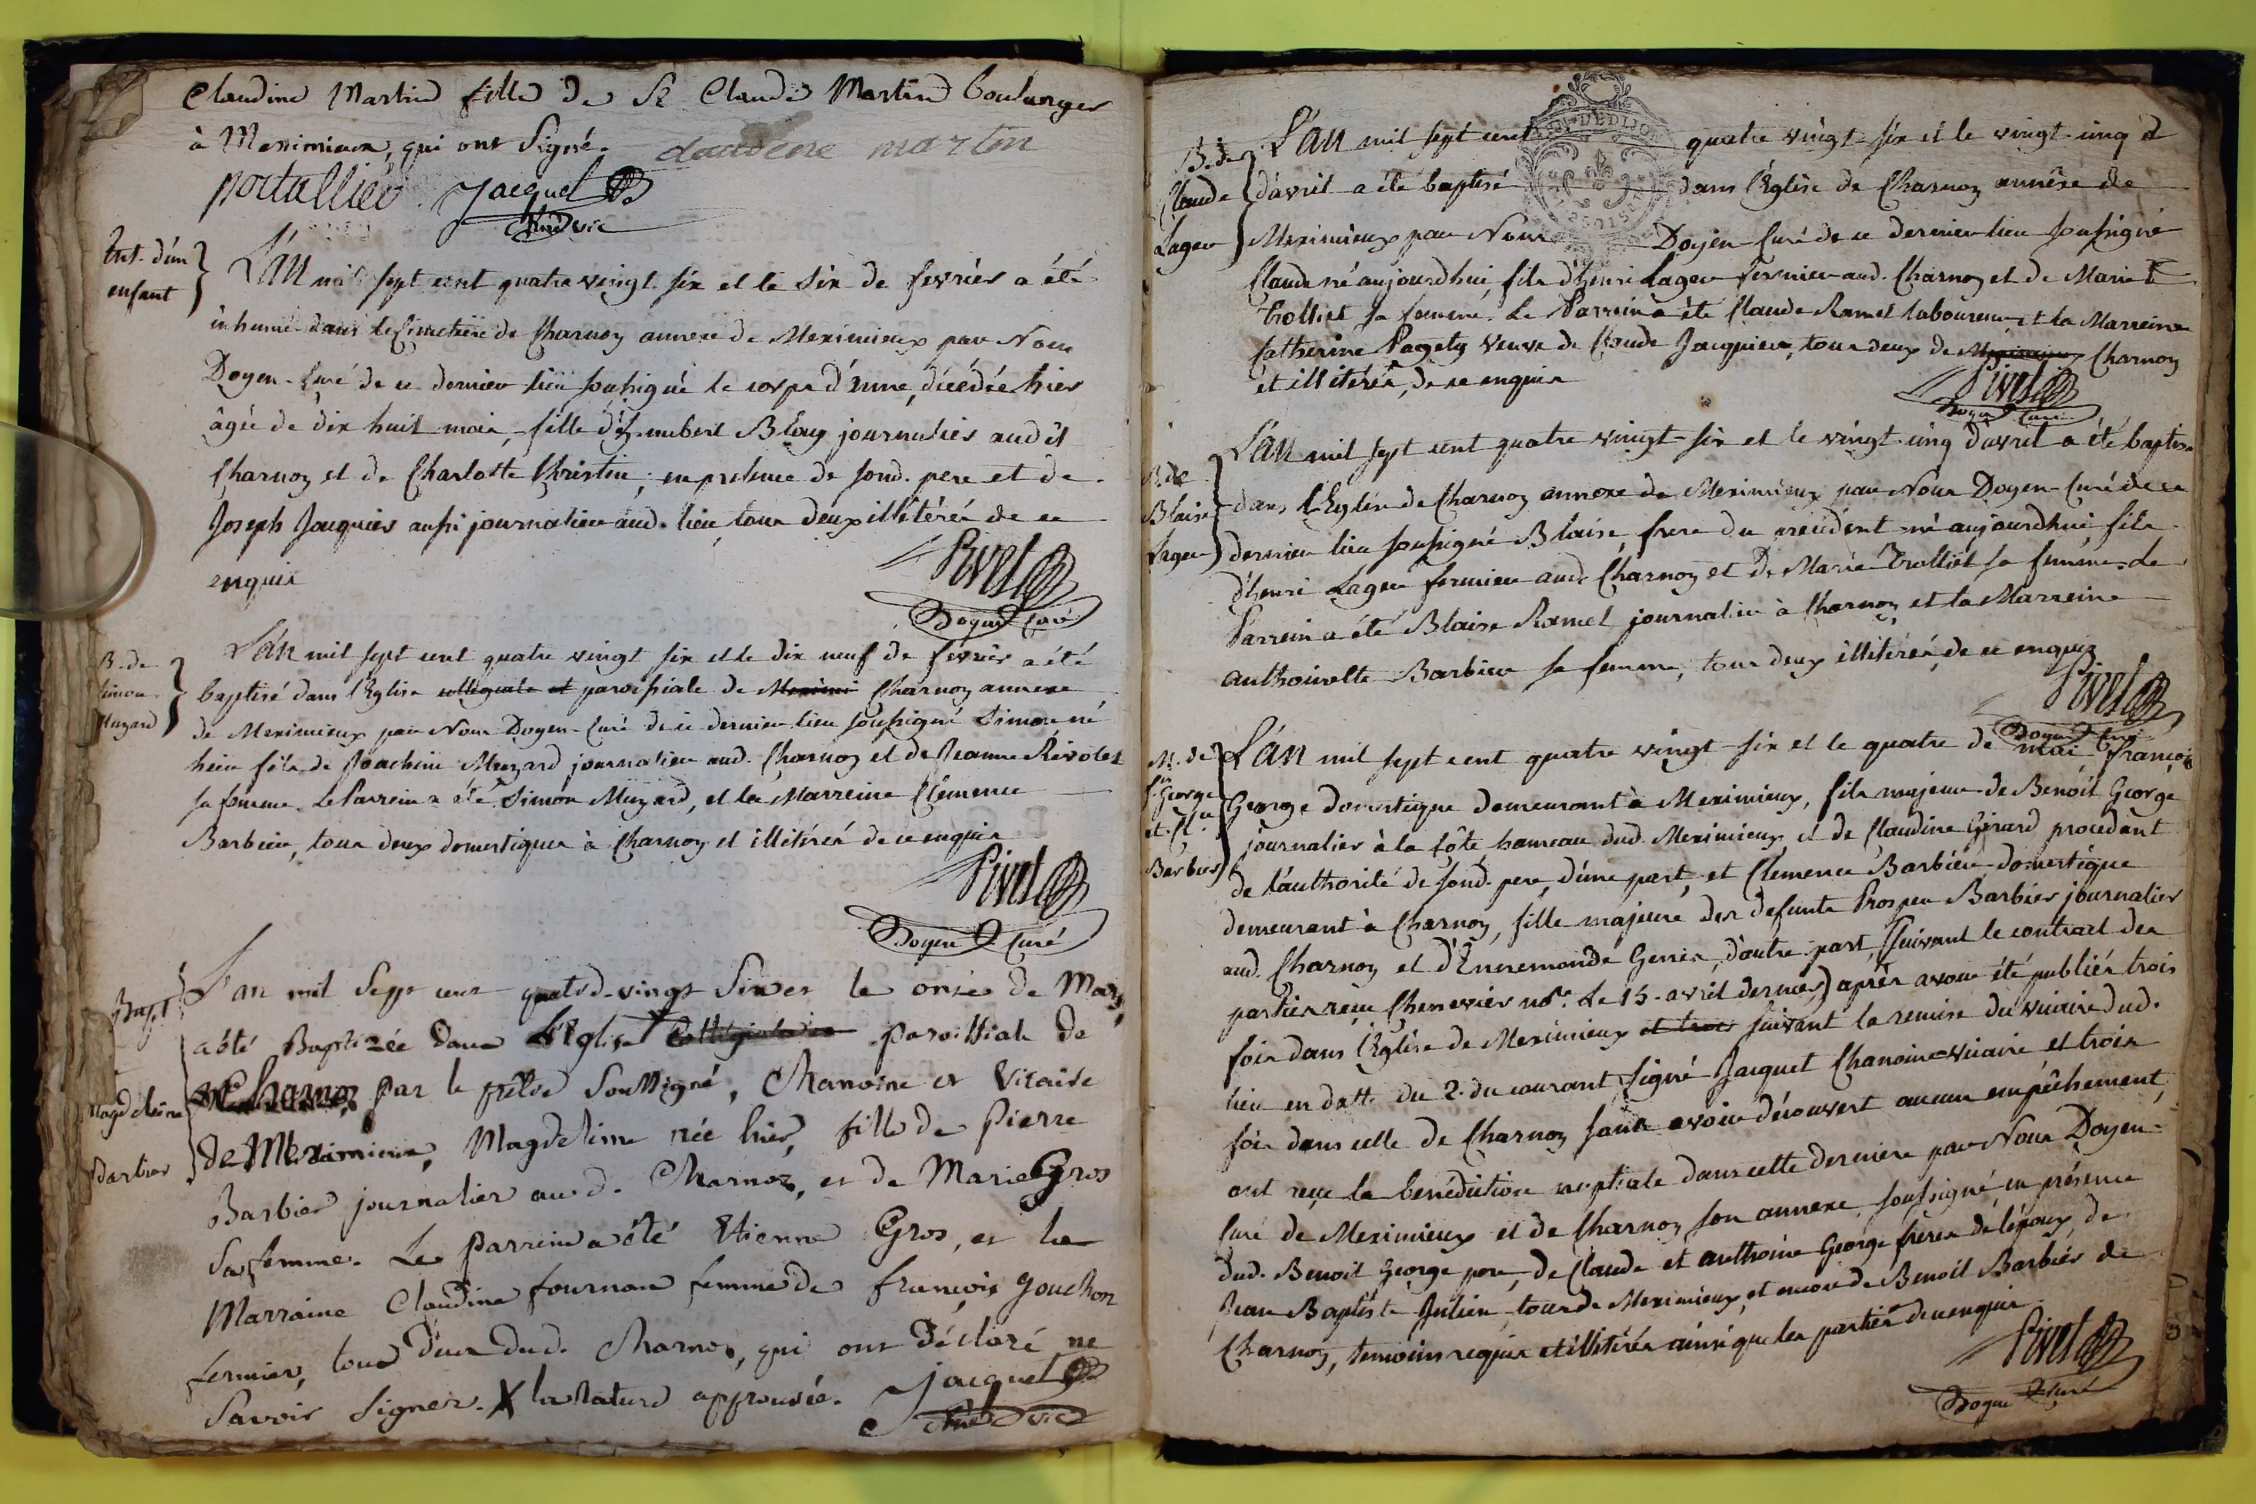 Claudine Martin fille de Sr Claude Martin boulanger
à Meximieux, qui ont signé.
claudine marton
portallier Jacquet
chne vic
Ent. d'un
enfant
L'an mil sept cent quatre vingt six et le six de fevrier a été
inhumé dans le Cimetiere de Charnoz annexe de Meximieux par Nous
Doyen-Curé de ce dernier lieu soussigné le corps d'Anne, décédée hier
âgée de dix huit mois, fille d'humbert Blanc journalier audit
Charnoz et de Charlotte Christin; en presence de sond. pere et de
Joseph Jacquier aussi journalier aud. lieu, tous deux illitérés de ce
enquis
Pivet
Doyen Curé
B. de
Simon
Muzard
L'an mil sept cent quatre vingt six et le dix neuf de fevrier a été
baptisé dans l'Eglise collégiale et paroissiale de Meximi Charnoz annexe
de Meximieux par Nous Doyen-Curé de ce dernier lieu soussigné Simon, né
hier fils de Joachim Muzard journalier aud. Charnoz et de Jeanne Rivolet
sa femme. Le Parrein a été Simon Muzard, et la Marreine Clémence
Barbier, tous deux domestiques à Charnoz et illitérés de ce enquis
Pivet
Doyen Curé
Bapt
Magdeleine
Barbier
L'an mil sept cent quatre-vingt six et le onze de Mars
a été Baptisée dans L'Eglise Collégiale et paroissiale de
Charnoz par le prêtre soussigné, Chanoine et Vicaire
de Meximieux, Magdeleine née hier, fille de Pierre
Barbier journalier aud. Charnoz, et de Marie Gros
sa femme. Le parrein a été Etienne Gros, et la
Marraine Claudine fournon femme de françois Gouchon
fermier, tous deux dud. Charnoz, qui ont déclaré ne
savoir signer. X la rature approuvée. Jacquet
chne vic
B. de
Claude
Lager
L'an mil sept cent quatre vingt-six et le vingt-cinq d
d'avril a été baptisé dans l'Eglise de Charnoz annexe de
Meximieux par Nous Doyen Curé de ce dernier lieu soussigné
Claude né aujourdhui, fils d'henri Lager fermier aud. Charnoz et de Marie T
Trolliet sa femme. Le Parrein a été Claude Ramel laboureur, et la Marreine
Catherine Pagety veuve de Claude Jacquier, tous deux de Meximieux Charnoz
et illitérés, de ce enquis
Pivet
Doyen Curé
B. de
Blaise
Lager
L'an mil sept cent quatre vingt-six et le vingt-cinq d'avril a été baptisé
dans l'Eglise de Charnoz annexe de Meximieux par Nous Doyen-Curé de ce
dernier lieu soussigné Blaise, frere du précédent né aujourdhui, fils
d'henri Lager fermier aud. Charnoz et de Marie Trolliet sa femme. Le
Parrein a été Blaise Ramel journalier à Charnoz, et la Marreine
Anthoinette Barbier sa femme, tous deux illitérés, de ce enquis
Pivet
Doyen Curé
M. de
fs George
et Cl.ce
Barbier
L'an mil sept cent quatre vingt-six et le quatre de mai françois
George domestique demeurant à Meximieux, fils majeur de Benoit George
journalier à la Côte hameau dud. Meximieux, et de Claudine Girard procédant
de l'authorité de sond. pere, d'une part, et Clemence Barbier domestique
demeurant à Charnoz, fille majeure des defunts Prosper Barbier journalier
aud. Charnoz et d'Ennemonde Genis, d'autre part, (suivant le contract des
parties reçu Chenevier nore. Le 15. avril dernier) après avoir été publiés trois
fois dans l'Eglise de Meximieux et trois suivant la remise du vicaire dud.
lieu en datte du 2. du courant, signé Jacquet Chanoine-vicaire et trois
fois dans celle de Charnoz sans avoir découvert aucun empêchement,
ont reçu la bénédiction nuptiale dans cette derniere par Nous Doyen-
Curé de Meximieux et de Charnoz son annexe soussigné en présence
dud. Benoit George pere, de Claude et anthoine George freres de l'époux, de
Jean Baptiste Julien, tous de Meximieux, et encore de Benoit Barbier de
Charnoz, temoins requis et illitérés ainsi que les parties de ce enquis
Pivet
Doyen Curé